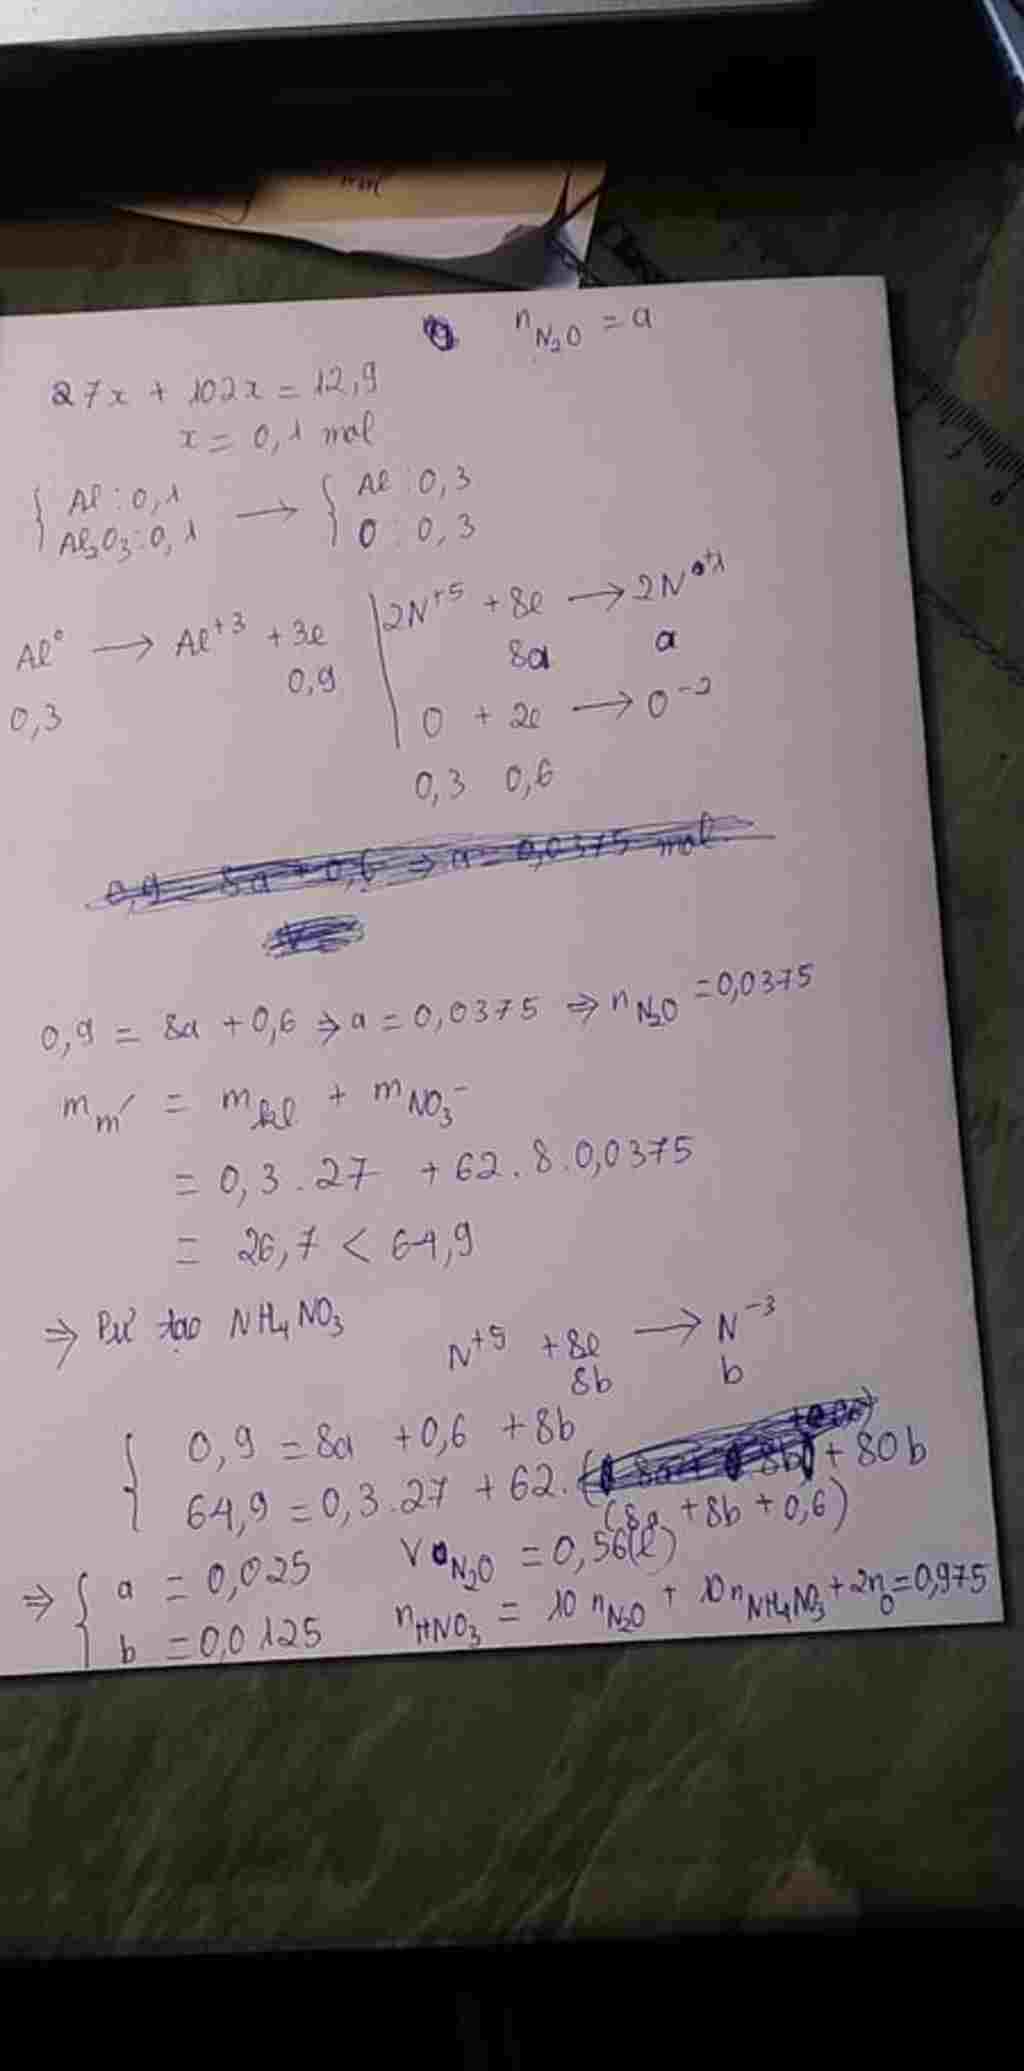 n N₂O = a
27x + 102x = 12,9
x = 0,1 mol
{ Al : 0,1 → { Al : 0,3
Al₂O₃ : 0,1 O : 0,3
Al⁰ → Al⁺³ + 3e
0,3 0,9
2N⁺⁵ + 8e → 2N⁺¹
8a a
O + 2e → O⁻²
0,3 0,6
0,9 = 8a + 0,6 ⇒ a = 0,0375 mol
0,9 = 8a + 0,6 ⇒ a = 0,0375 ⇒ n N₂O = 0,0375
m m' = m kl + m NO₃⁻
= 0,3 . 27 + 62 . 8 . 0,0375
= 26,7 < 64,9
⇒ Pư tạo NH₄NO₃
N⁺⁵ + 8e → N⁻³
8b b
{ 0,9 = 8a + 0,6 + 8b
64,9 = 0,3 . 27 + 62 . (8a + 8b + 0,6) + 80b
⇒ { a = 0,025 V N₂O = 0,56(l)
b = 0,0125 n HNO₃ = 10 n N₂O + 10 n NH₄NO₃ + 2n O = 0,975